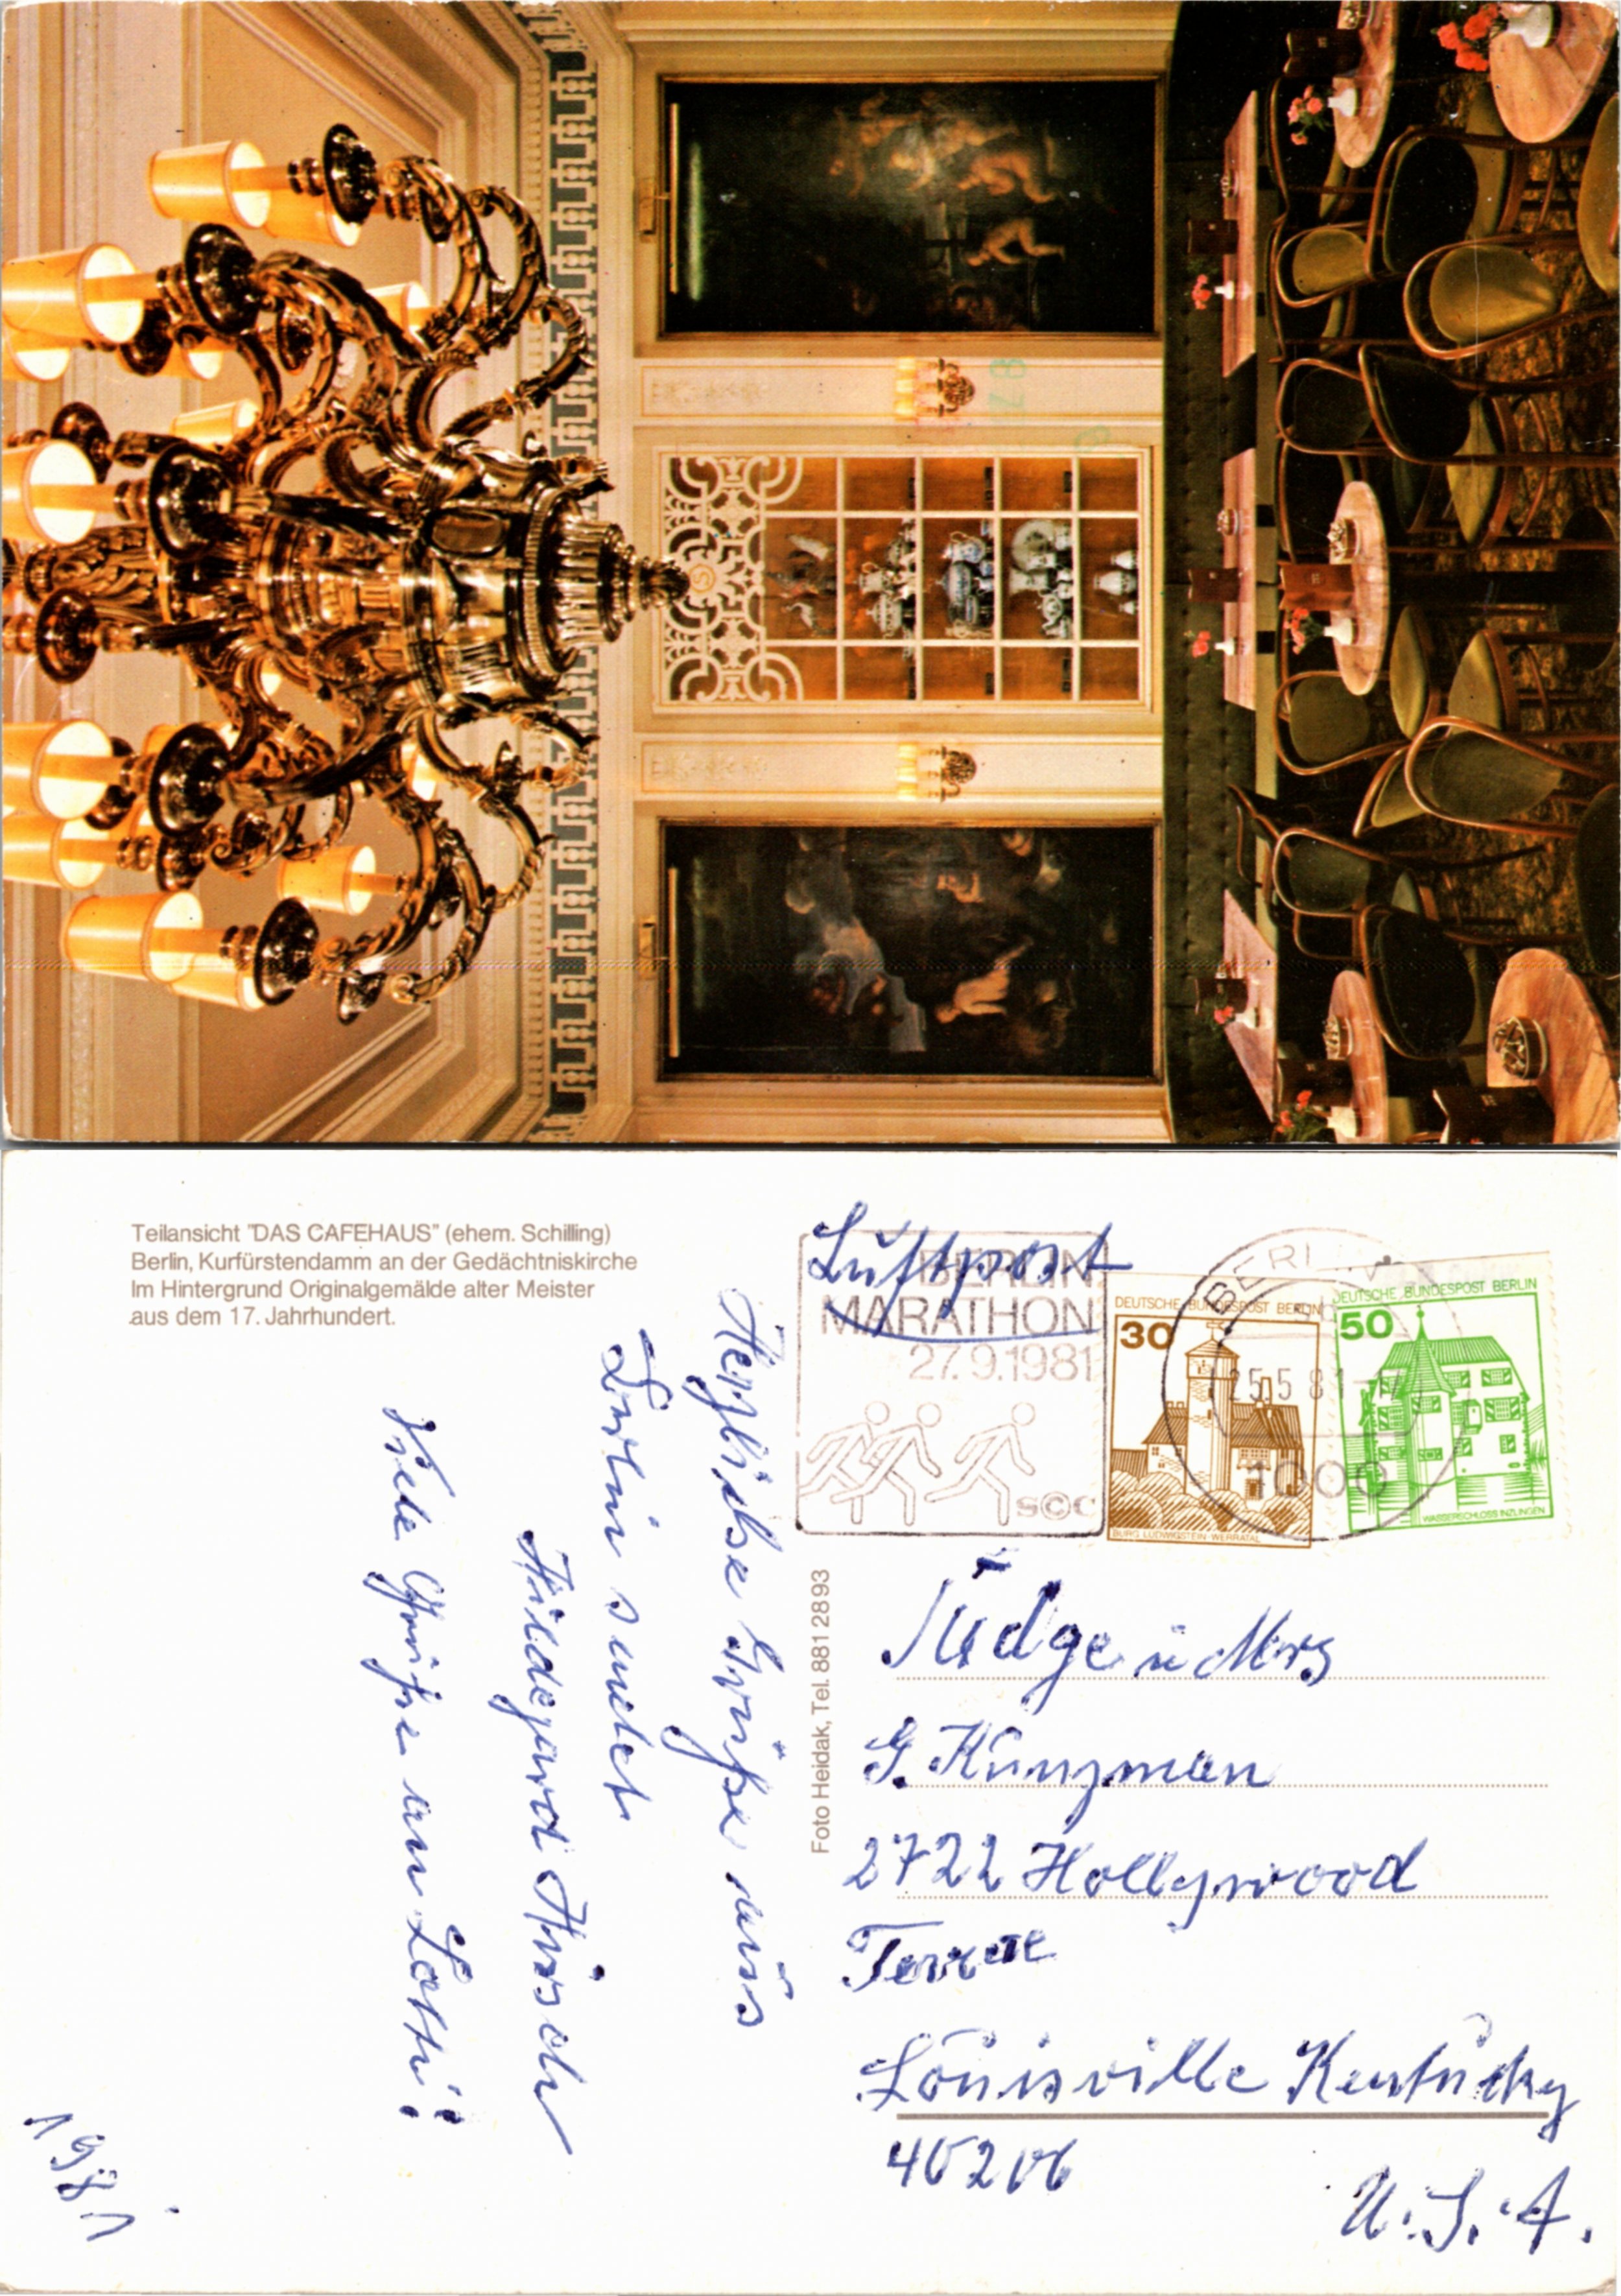 Teilansicht "DAS CAFEHAUS" (ehem. Schilling)
Berlin, Kurfürstendamm an der Gedächtniskirche
Im Hintergrund Originalgemälde alter Meister
aus dem 17. Jahrhundert.
Luftpost
BERLIN
MARATHON
27.9.1981
SCC
DEUTSCHE BUNDESPOST BERLIN
30
BURG LUDWIGSTEIN-WERRATAL
DEUTSCHE BUNDESPOST BERLIN
50
WASSERSCHLOSS INZLINGEN
BERLIN
25.5.81
1000
Herzliche Grüße aus
Berlin sendet
Hildegard Hirsch
Viele Grüße an Lotti!
1981
Foto Heidak, Tel. 881 28 93
Judge u Mrs
G. Kunzman
2722 Hollywood
Terrace
Louisville Kentucky
40206
U.S.A.